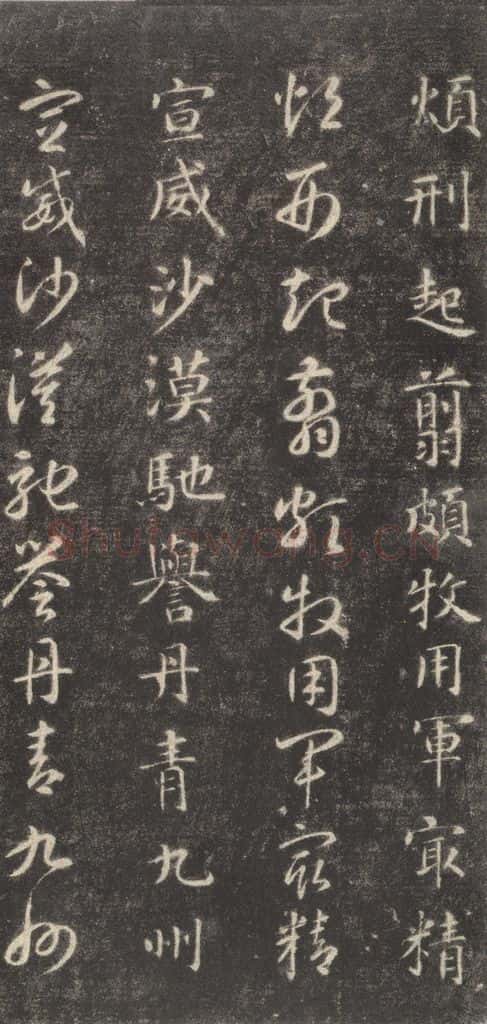 煩刑起翦頗牧用軍㝡精
煩刑起翦頗牧用軍㝡精
宣威沙漠馳譽丹青九州
宣威沙漠馳譽丹青九州
Shufawang.CN